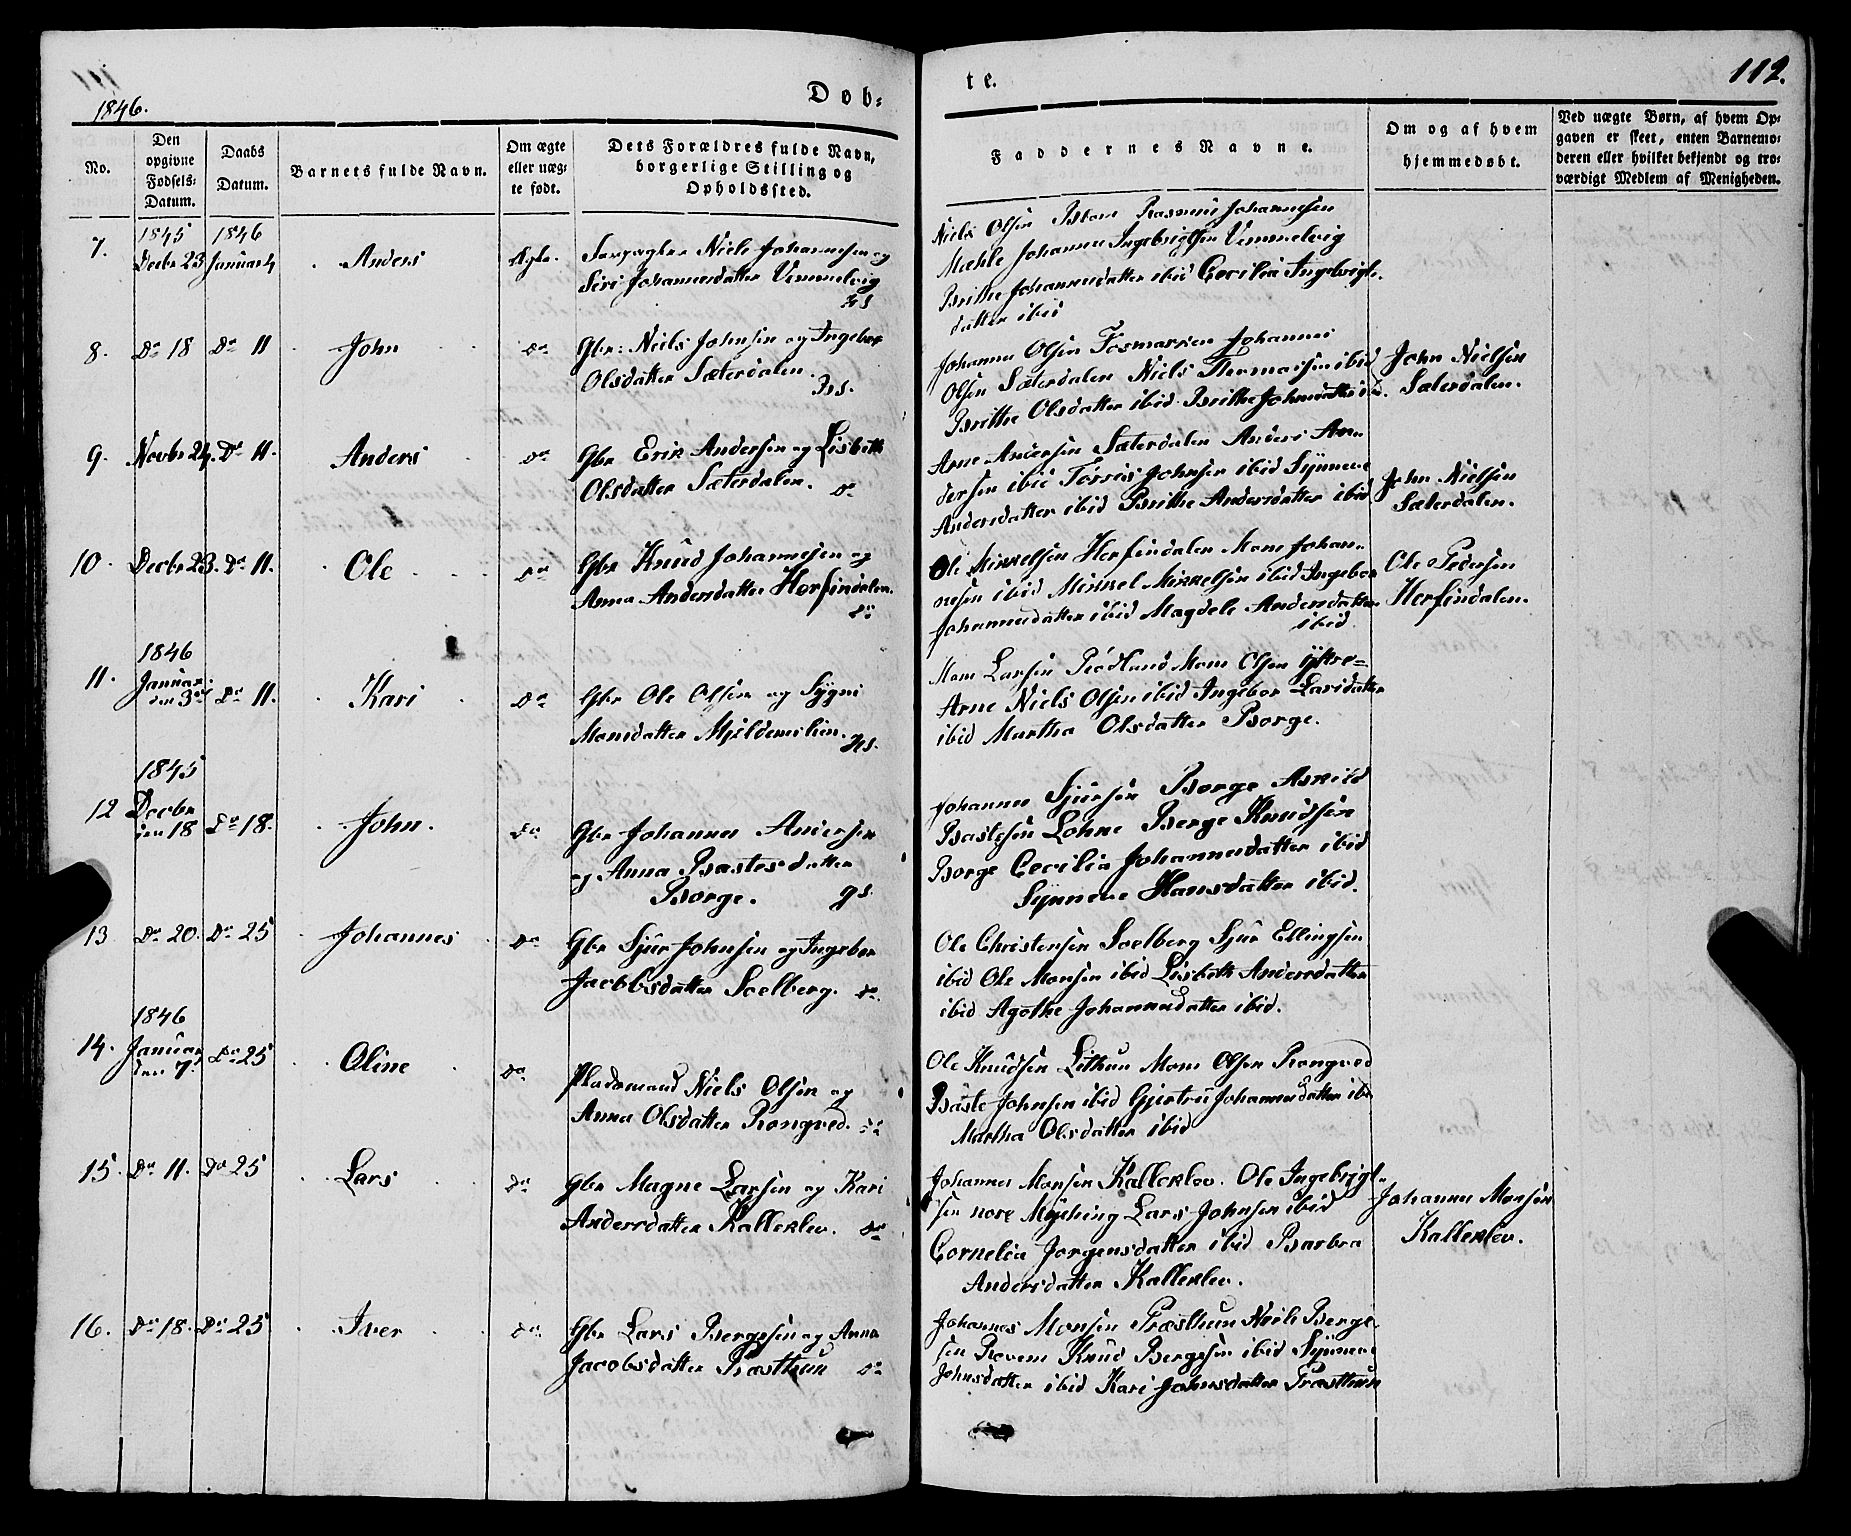 1846.
Døb-
te.
112.
No.
Den opgivne Fødsels-Datum.
Daabs Datum.
Barnets fulde Navn.
Om ægte eller uæg-te født.
Dets Forældres fulde Navn, borgerlige Stilling og Opholdssted.
Faddernes Navne.
Om og af hvem hjemmedøbt.
Ved uægte Børn, af hvem Op-
gaven er skeet, enten Barnemo-
deren eller hvilket bekjendt og tro-
værdigt Medlem af Menigheden.
7. 1845 Decbr 23 1846 Januar 4 Anders Ægte.
Niels Johannesen og
Siri Johannesdatter Vemmelvig
Niels Olsen Rasmus Johannesen
Mæhle Johannes Ingebrigtsen Vemmelvig
Brithe Johannesdatter ibid Cecilia Ingebrigts-
datter ibid
8. Do 18 Do 11 John Do
Gbr: Niels Johnsen og Ingebor
Olsdatter Sæterdalen. Hs.
Johannes Olsen Johannes
Olsen Sæterdalen Niels ibid
Brithe Olsdatter ibid Brithe
John Nielsen
Sæterdalen.
9. Novbr 24. Do 11. Anders Do
Gbr Erik Andersen og Lisbeth
Olsdatter Sæterdalen. Do
Arne Andersen Sæterdalen Anders An-
dersen ibid Torris Johnsen ibid Synneve
Andersdatter ibid Brithe Andersdatter ibid
John Nielsen
Sæterdalen.
10. Decbr 23. Do 11. Ole Do
Gbr Knud Johannesen og
Anna Andersdatter Herfindalen.
Do
Ole Mikkelsen Herfindalen Mons Johan-
nesen ibid Mikkel Mikkelsen ibid Ingebor
Johannesdatter ibid Magdele Andersdatter
ibid
Ole Pedersen
Herfindalen.
11. 1846 Januar den 3die Do 11. Kari Do
Gbr Ole Olsen og Sygni
Monsdatter Mjeldemslien. Hs.
Mons Larsen Rødland Mons Olsen Ystre-
Arne Niels Olsen ibid Ingebor Larsdatter
ibid Martha Olsdatter Borge.
12 1845 Decbr den 18 Do 18. John. Do
Gbr Johannes Andersen
og Anna Bastesdatter
Borge. gs.
Johannes Sjursen Borge Askild
Bastesen Lohne Berge Knudsen
Borge Cecilia Johannesdatter ibid
Synneve Hansdatter ibid.
13 Do 20. Do 25 Johannes Do
Gbr Sjur Johnsen og Ingebor
Jacobsdatter Soelberg. Do.
Ole Christensen Soelberg Sjur Ellingsen
ibid Ole Monsen ibid Lisbeth Andersdatter
ibid Agathe Johannesdatter ibid.
14. 1846 Januar den 7. Do 25 Oline Do
Pladsmand Niels Olsen og
Anna Olsdatter Rongved. Do
Ole Knudsen Lithun Mons Olsen Rongved
Baste Johnsen ibid Gjertru Johannesdatter ibd
Martha Olsdatter ibid
15. Do 11. Do 25 Lars Do
Gbr Magne Larsen og Kari
Andersdatter Kalleklev. Do
Johannes Monsen Kalleklev. Ole Ingebrigt-
sen nore Myhing Lars Johnsen ibid
Cornelia Jorgensdatter ibid Barbra
Andersdatter Kalleklev.
Johannes Monsen
Kalleklev.
16. Do 18. Do 25 Iver Do
Gbr Lars Bergesen og Anna
Jacobsdatter Præsthun Do
Johannes Monsen Præsthun Niels Berge-
sen Revem Knud Bergesen ibid Synneve
Johnsdatter ibid Kari Johnsdatter Præsthun